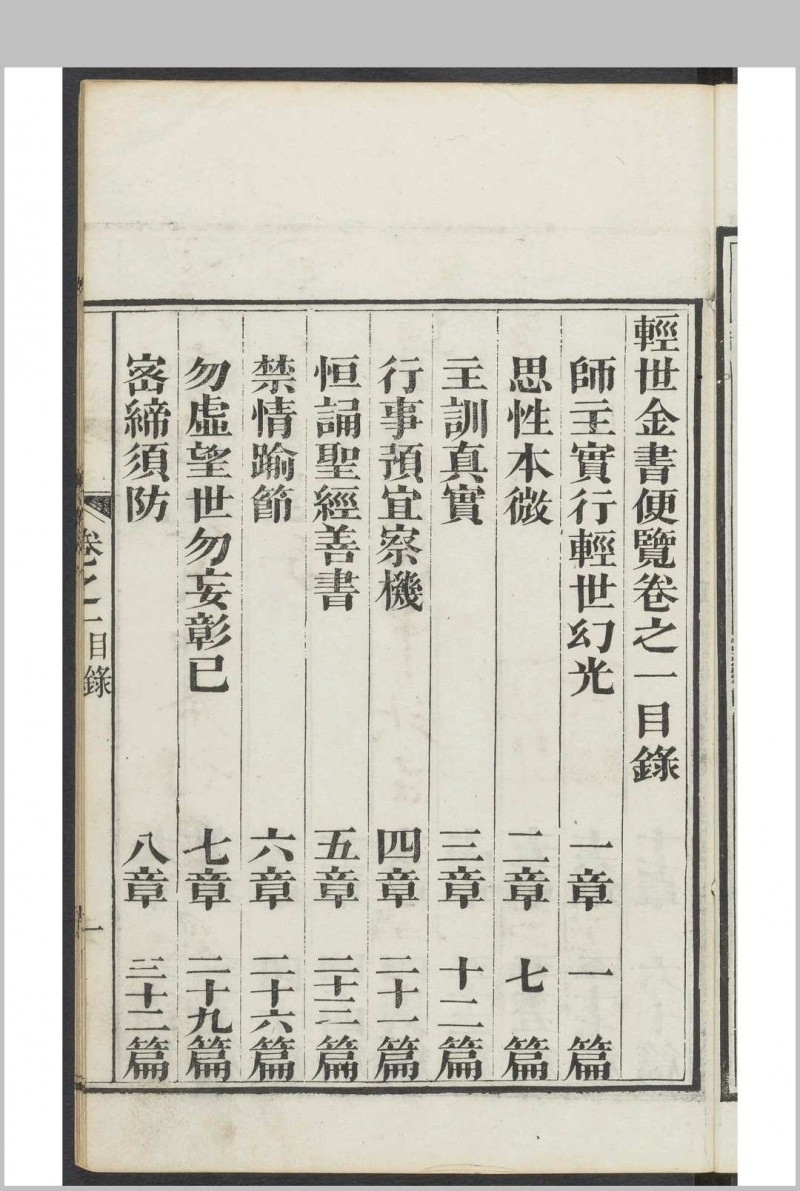 輕世金書便覽卷之一目錄
師主實行輕世幻光 一章 一篇
思性本微 二章 七篇
主訓真實 三章 十二篇
行事預宜察機 四章 二十一篇
恒誦聖經善書 五章 二十三篇
禁情踰節 六章 二十六篇
勿虛望世勿妄彰已 七章 二十九篇
密締須防 八章 三十二篇
卷之一目錄 一